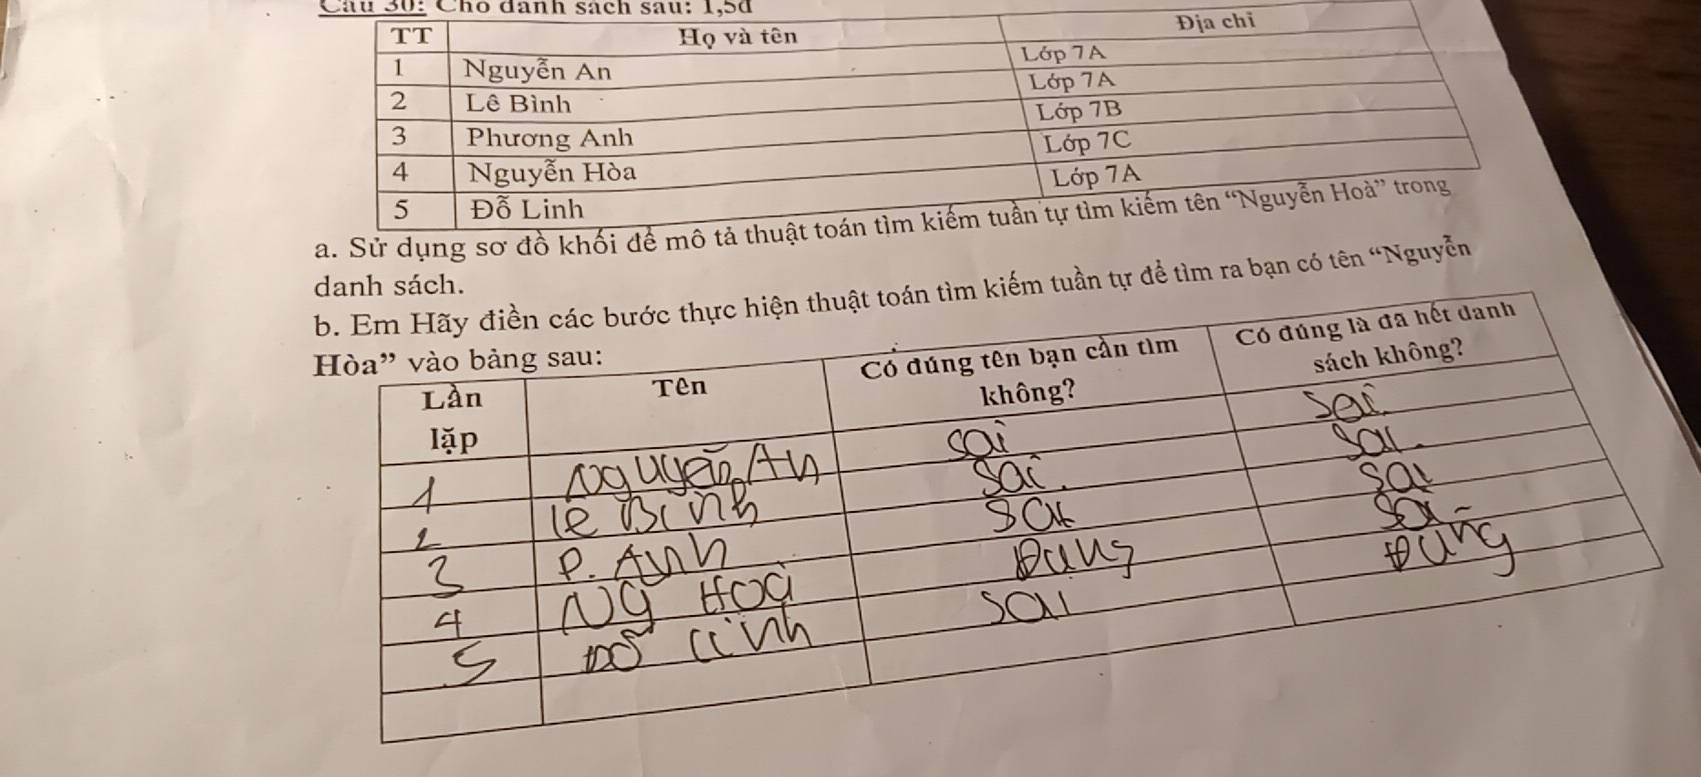 Câu 30: Cho danh sách sau: 1,5đ
TT Họ và tên Địa chỉ
1 Nguyễn An Lớp 7A
2 Lê Bình Lớp 7A
3 Phương Anh Lớp 7B
4 Nguyễn Hòa Lớp 7C
5 Đỗ Linh Lớp 7A
a. Sử dụng sơ đồ khối để mô tả thuật toán tìm kiếm tuần tự tìm kiếm tên “Nguyễn Hoà” trong
danh sách.
b. Em Hãy điền các bước thực hiện thuật toán tìm kiếm tuần tự để tìm ra bạn có tên “Nguyễn
Hòa” vào bảng sau:
Lần lặp Tên Có đúng tên bạn cần tìm không? Có đúng là đã hết danh sách không?
1 Nguyễn An sai sai
2 lê Bình sai sai
3 P. Anh sai sai
4 Ng Hoà Đúng sai
5 Đỗ linh sai Đúng